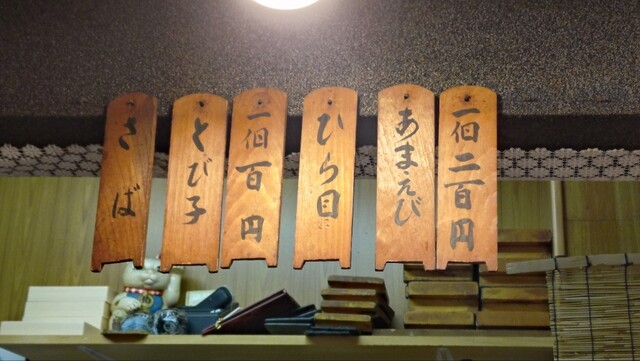 一個二百円
あまえび
ひら目
一個百円
とび子
さば